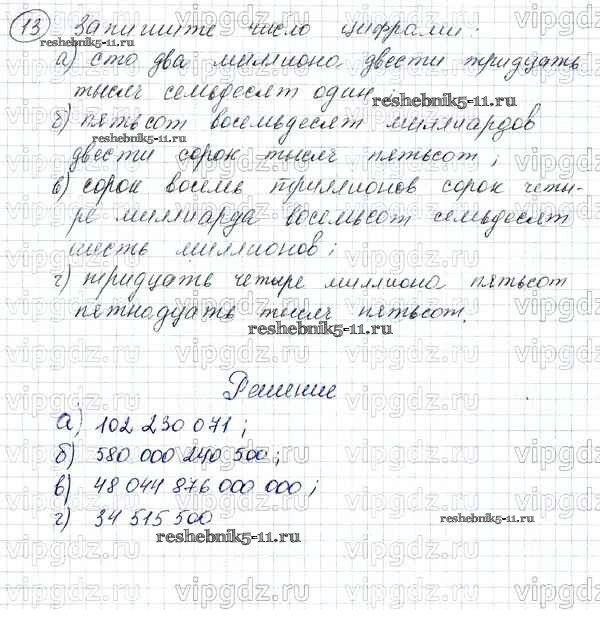 13 Запишите число цифрами:
а) сто два миллиона двести тридцать
тысяч семьдесят один;
б) пятьсот восемьдесят миллиардов
двести сорок тысяч пятьсот;
в) сорок восемь триллионов сорок четы-
ре миллиарда восемьсот семьдесят
шесть миллионов;
г) тридцать четыре миллиона пятьсот
пятнадцать тысяч пятьсот.
Решение
а) 102 230 071;
б) 580 000 240 500;
в) 48 044 876 000 000;
г) 34 515 500
reshebnik5-11.ru
reshebnik5-11.ru
reshebnik5-11.ru
reshebnik5-11.ru
reshebnik5-11.ru
reshebnik5-11.ru
vipgdz.ru